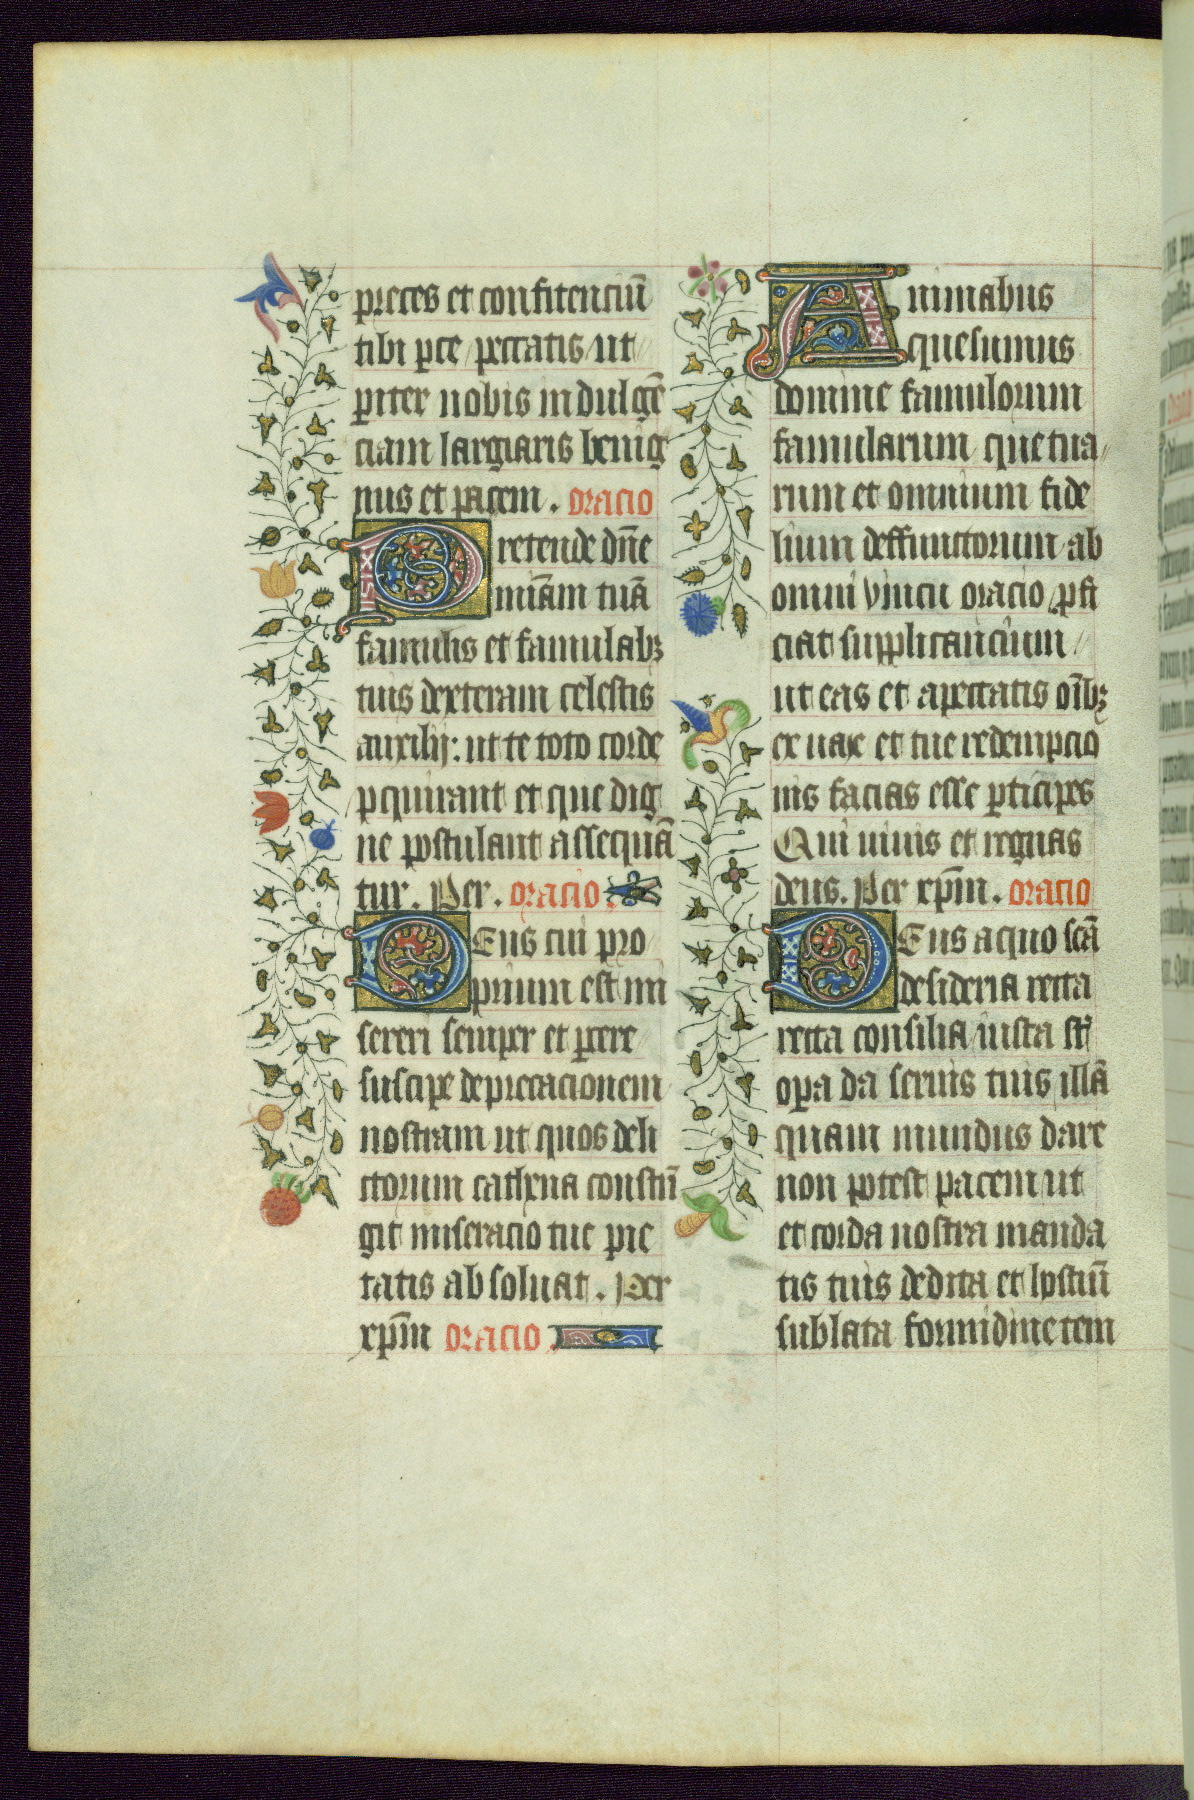 preces et confitenciū
tibi pce peccatis ut
piter nobis indulgē
ciam largiaris benig
nus et pacem. oracio
Pretende dn̄e
mīam tuā
famulis et famulabꝫ
tuis dexteram celestis
auxilij: ut te toto corde
pquirant et que dig
ne postulant assequā
tur. Per. oracio
DEus cui pro
prium est mi
sereri semper et pcere
suscipe deprecacionem
nostram ut quos deli
ctorum cathena constrī
git miseracio tue pie
tatis absoluat. Per
xp̄m oracio
Animabus
quesumus
domine famulorum
famularum que tua
rum et omnium fide
lium deffunctorum ab
omni vincu oracio pfi
ciat supplicancium
ut eas et a peccatis oībꝫ
exuas et tue redempcio
nis facias esse pticipes
Qui uiuis et regnas
deus. Per xp̄m. oracio
DEus a quo scā
desideria recta
recta consilia iusta st̄
opa da seruis tuis illā
quam mundus dare
non potest pacem ut
et corda nostra manda
tis tuis dedita et hostiū
sublata formidine tem